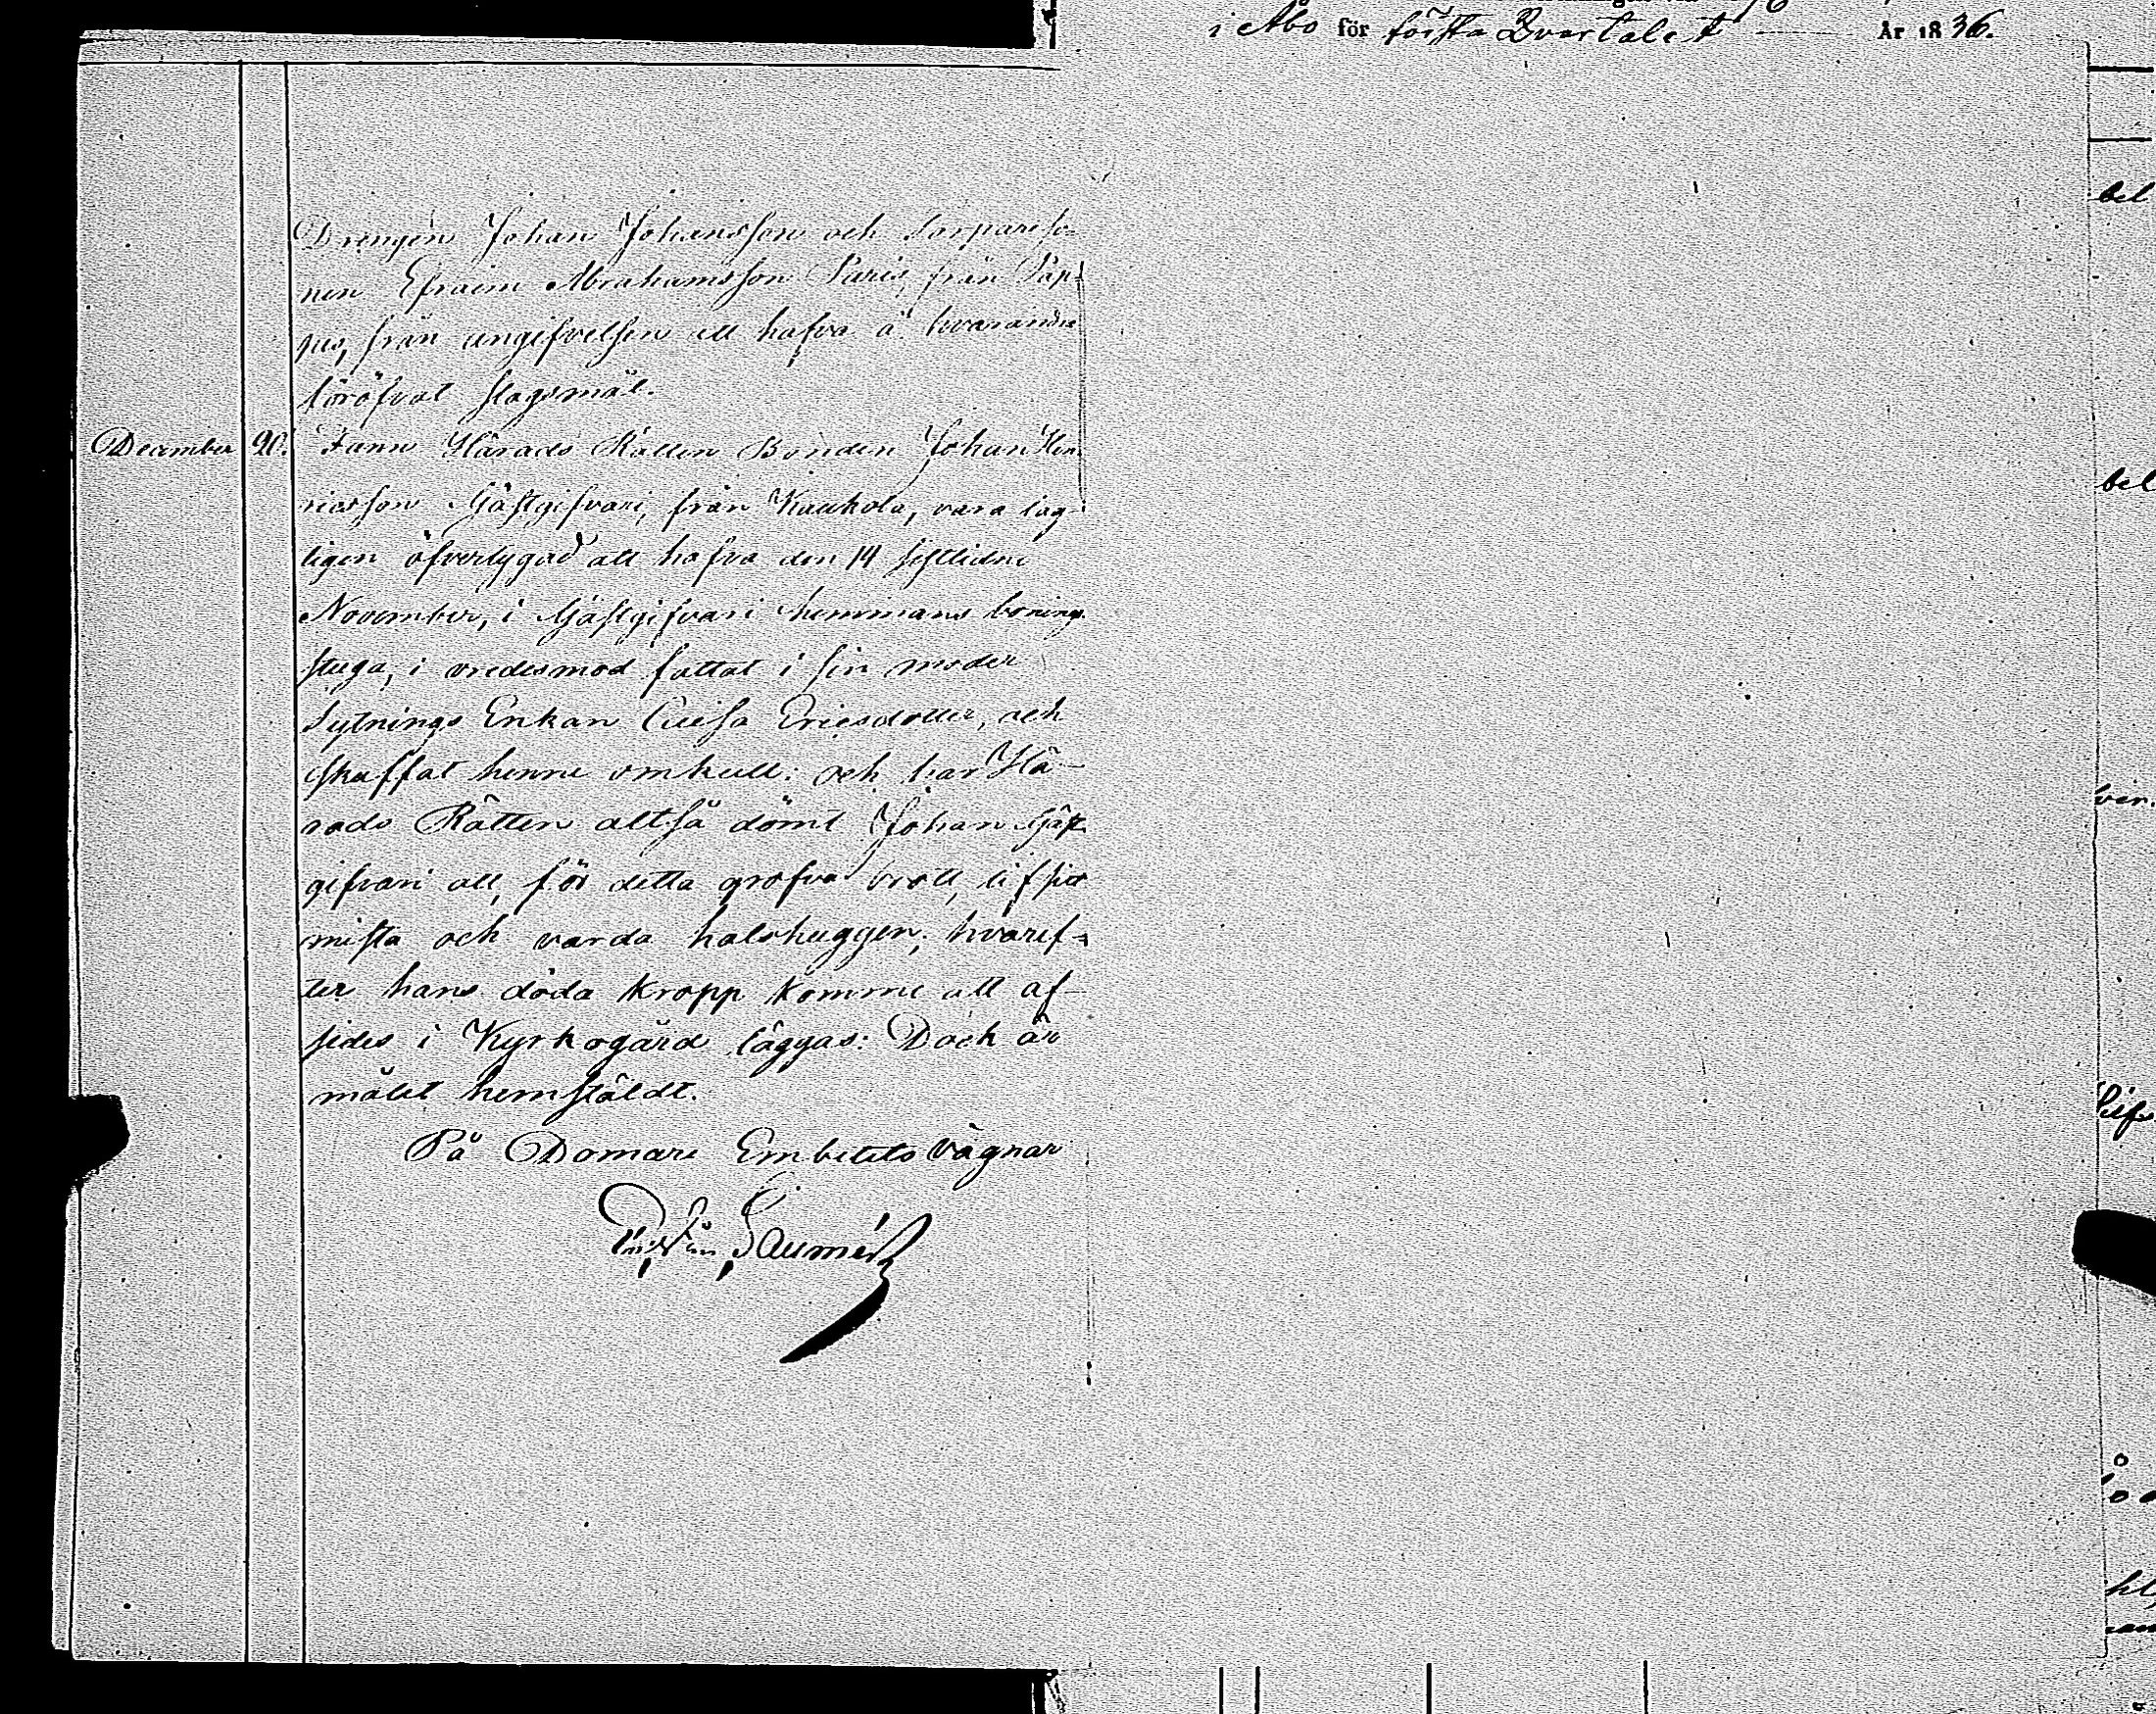 i Åbo för första Qvartalet År 1836.
Drengen Johan Johansson och torpareso-
nen Efraim Abrahamsson Paris, från Pap-
pis, från angifvelsen att hafva å hvarandra
föröfvat slagsmål.
December 20. Fann Härads Rätten Bonden Johan Hen-
ricsson Gästgifvari, från Kaukola, vara lag-
ligen öfvertygad att hafva den 14 sistlidne
November, i Gästgifvari hemmans bonings
stuga, i vredesmod fattat i sin moder
Sytnings Enkan Caisa Ericsdotter, och
skuffat henne omkull: och har Hä-
rads Rätten altså dömt Johan Gäst-
gifvari att för detta grofva brott, lif sitt
mista och varda halshuggen; hvaref-
ter hans döda kropp komme att af-
sides i Kyrkogård läggas: Dock är
målet hemstäldt.
På Domare Embetets vägnar
bel
bel